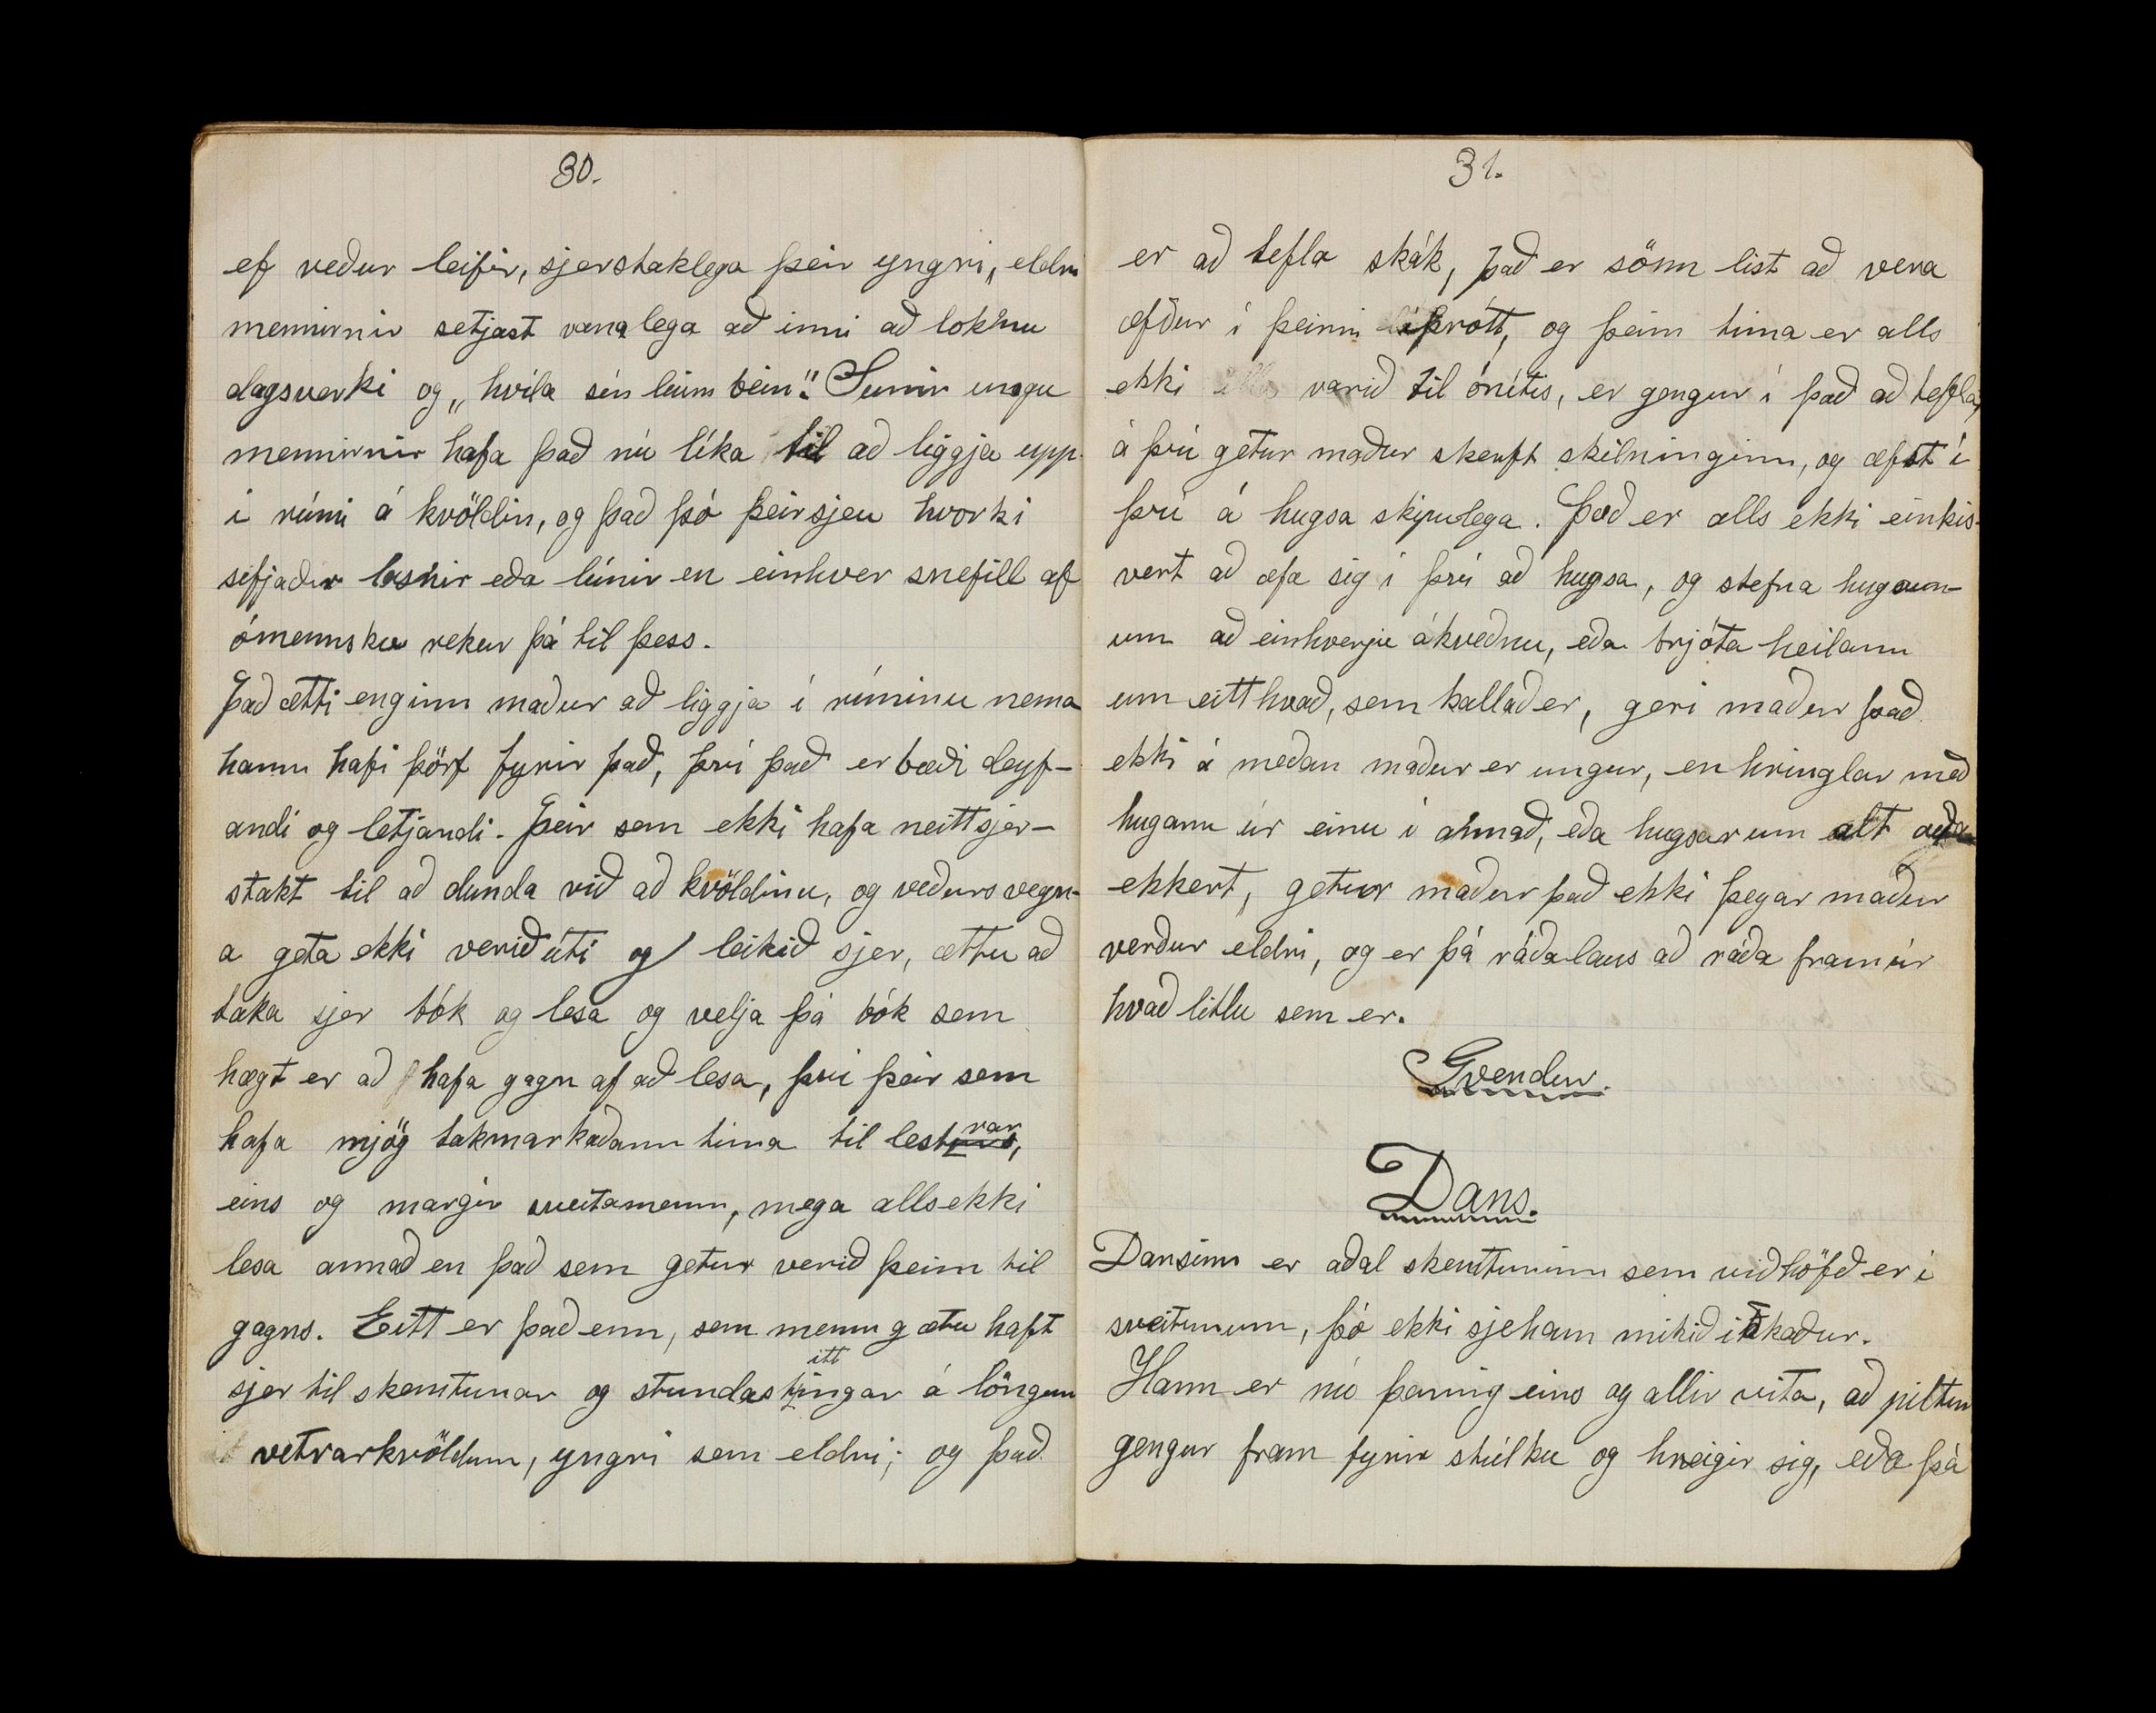 30.
ef veður leifir, sjerstaklega þeir yngri, eldri
mennirnir setjast vanalega að inni að loknu
dagsverki og „hvíla sín lúin bein“. Sumir ungu
mennirnir hafa það nú líka til að liggja upp
í rúmi á kvöldin, og það þó þeir sjeu hvorki
sifjaðir lasnir eða lúnir en einhver snefill af
ómennsku rekur þá til þess.
Það ætti enginn maður að liggja í rúminu nema
hann hafi þörf fyrir það, því það er bæði deyf-
andi og letjandi. Þeir sem ekki hafa neitt sjer-
stakt til að dunda við að kvöldinu, og veðurs vegn-
a geta ekki verið úti og leikið sjer, ættu að
taka sjer bók og lesa og velja þá bók sem
hægt er að hafa gagn af að lesa, því þeir sem
hafa mjög takmarkaðann tíma til lestrar,
eins og margir sveitamenn, mega alls ekki
lesa annað en það sem getur verið þeim til
gagns. Eitt er það enn, sem menn gætu haft
sjer til skemtunar og stundastittingar á löngum
vetrarkvöldum, yngri sem eldri; og það
31.
er að tefla skák, það er sönn list að vera
æfður í þeirri íþrótt, og þeim tíma er alls
ekki varið til ónítis, er gengur í það að tefla,
á því getur maður skerft skilninginn, og æfst í
því á hugsa skipulega. Það er alls ekki einkis-
vert að æfa sig í því að hugsa, og stefna hugsun-
um að einhverju ákveðnu, eða brjóta heilann
um eitthvað, sem kallað er, geri maður það
ekki á meðan maður er ungur, en hringlar með
hugann úr einu í annað, eða hugsar um alt eða
ekkert, getur maður það ekki þegar maður
verður eldri, og er þá ráðalaus að ráða fram úr
hvað litlu sem er.
Gvendur.
Dans.
Dansinn er aðal skemtuninn sem viðhöfð er í
sveitunum, þó ekki sje hann mikið iðkaður.
Hann er nú þannig eins og allir vita, að piltur
gengur fram fyrir stúlku og hneigir sig, eða þá